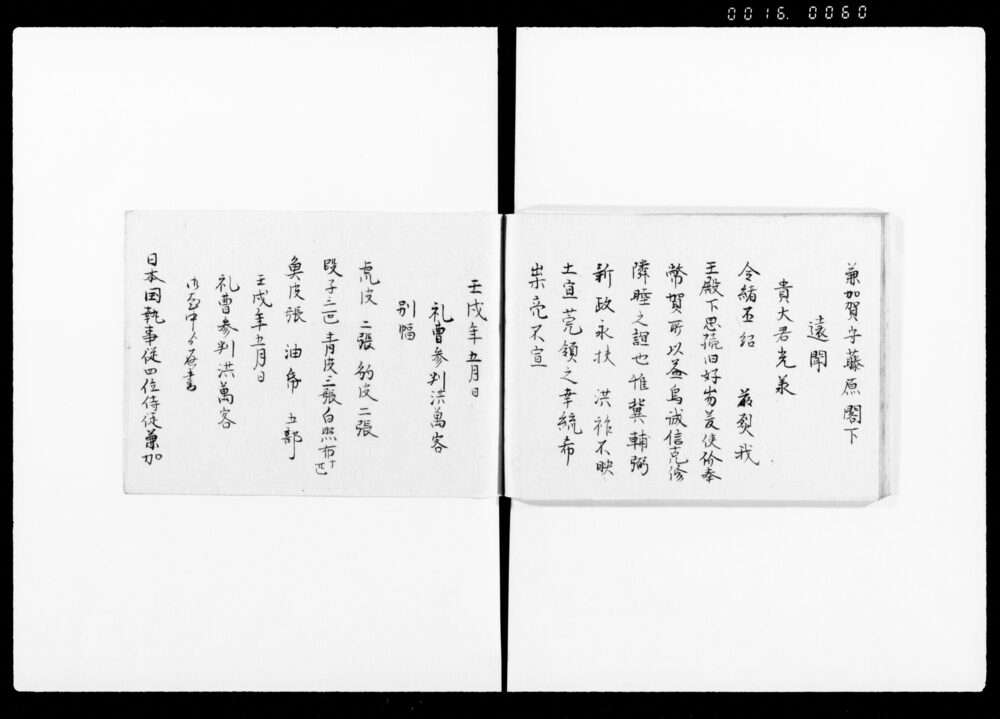 0016. 0060
兼加賀守藤原閣下
遠聞
貴大君光承
令緒丕紹 前烈我
王殿下思旧好使价奉
幣賀所以益為誠信克修
隣睦之誼也惟冀輔弼
新政永扶 洪祚不腆
土宣莞領之幸統希
崇亮不宣
壬戌年五月日
礼曹参判洪萬客
別幅
虎皮 二張 豹皮 二張
段子三匹 青皮三張 白照布十匹
魚皮張 油芚 五部
壬戌年五月日
礼曹参判洪萬客
日本国執事従四位侍従兼加